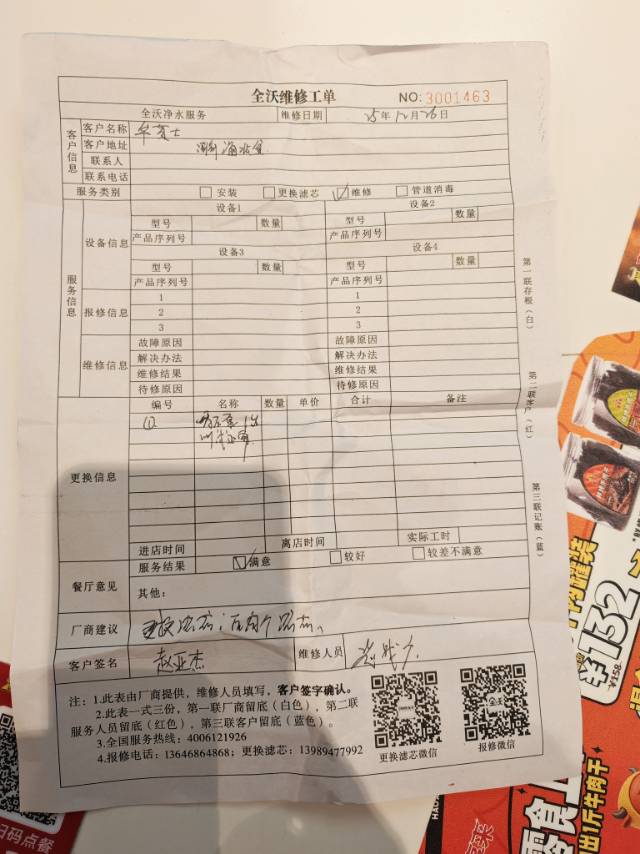 全沃维修工单
NO: 3001463
全沃净水服务 维修日期 25年12月26日
客户信息
客户名称
客户地址
联系人
联系电话
服务类别 安装 更换滤芯 维修 管道消毒
服务信息
设备信息
设备1 设备2
型号 数量 型号 数量
产品序列号 产品序列号
设备3 设备4
型号 数量 型号 数量
产品序列号 产品序列号
报修信息
1 1
2 2
3 3
维修信息
故障原因 故障原因
解决办法 解决办法
维修结果 维修结果
待修原因 待修原因
更换信息
编号 名称 数量 单价 合计 备注
①
进店时间 离店时间 实际工时
餐厅意见
服务结果 满意 较好 较差不满意
其他:
厂商建议
客户签名 赵亚杰 维修人员
注:1.此表由厂商提供,维修人员填写,客户签字确认。
2.此表一式三份,第一联厂商留底(白色),第二联
服务人员留底(红色),第三联客户留底(蓝色)。
3.全国服务热线:4006121926
4.报修电话:13646864868;更换滤芯:13989477992
更换滤芯微信 报修微信
第一联存根(白)
第二联客户(红)
第三联记账(蓝)
132
¥158
零食
扫码点餐